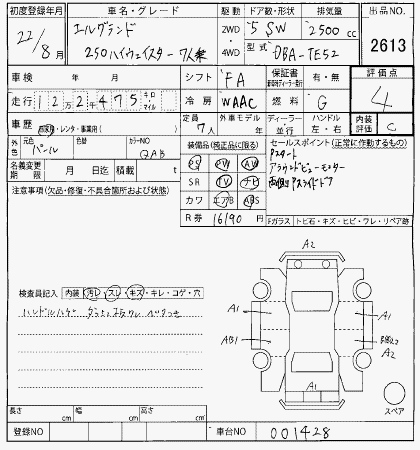 初度登録年月 車名・グレード 駆動 ドア数・形状 排気量 出品NO.
22/8月 エルグランド 2WD 5 SW 2500 cc
250ハイウェイスター 7人乗 4WD 型式 DBA-TE52 2613
車検 年 月 シフト FA 保証書 有・無 評価点
走行 12万2千475 キロ マイル 冷房 WAAC 燃料 G 4
車歴 自家用・レンタ・事業用( ) 定員 7人 外車モデル 年 ディーラー 並行 ハンドル 左・右 内装評価 C
外色 元色 パール 色替 カラーNO QAB
装備品(純正品に限る) セールスポイント(正常に作動するもの)
名義変更期限 月 日迄 積載 t
PS PW AW Pスタート
SR TV ナビ アラウンドビューモニター
カワ エアB ABS 両側Pスライドドア
注意事項(欠品・修復・不具合箇所および状態)
R券 16190 円 Fガラス トビ石・キズ・ヒビ・ワレ・リペア跡
検査員記入 内装 汚レ・スレ・キズ・キレ・コゲ・穴
A2
A1 A1
AB1 A2
A1
A2
スペア
長さ cm 幅 cm 高さ cm
登録NO 車台NO 001428